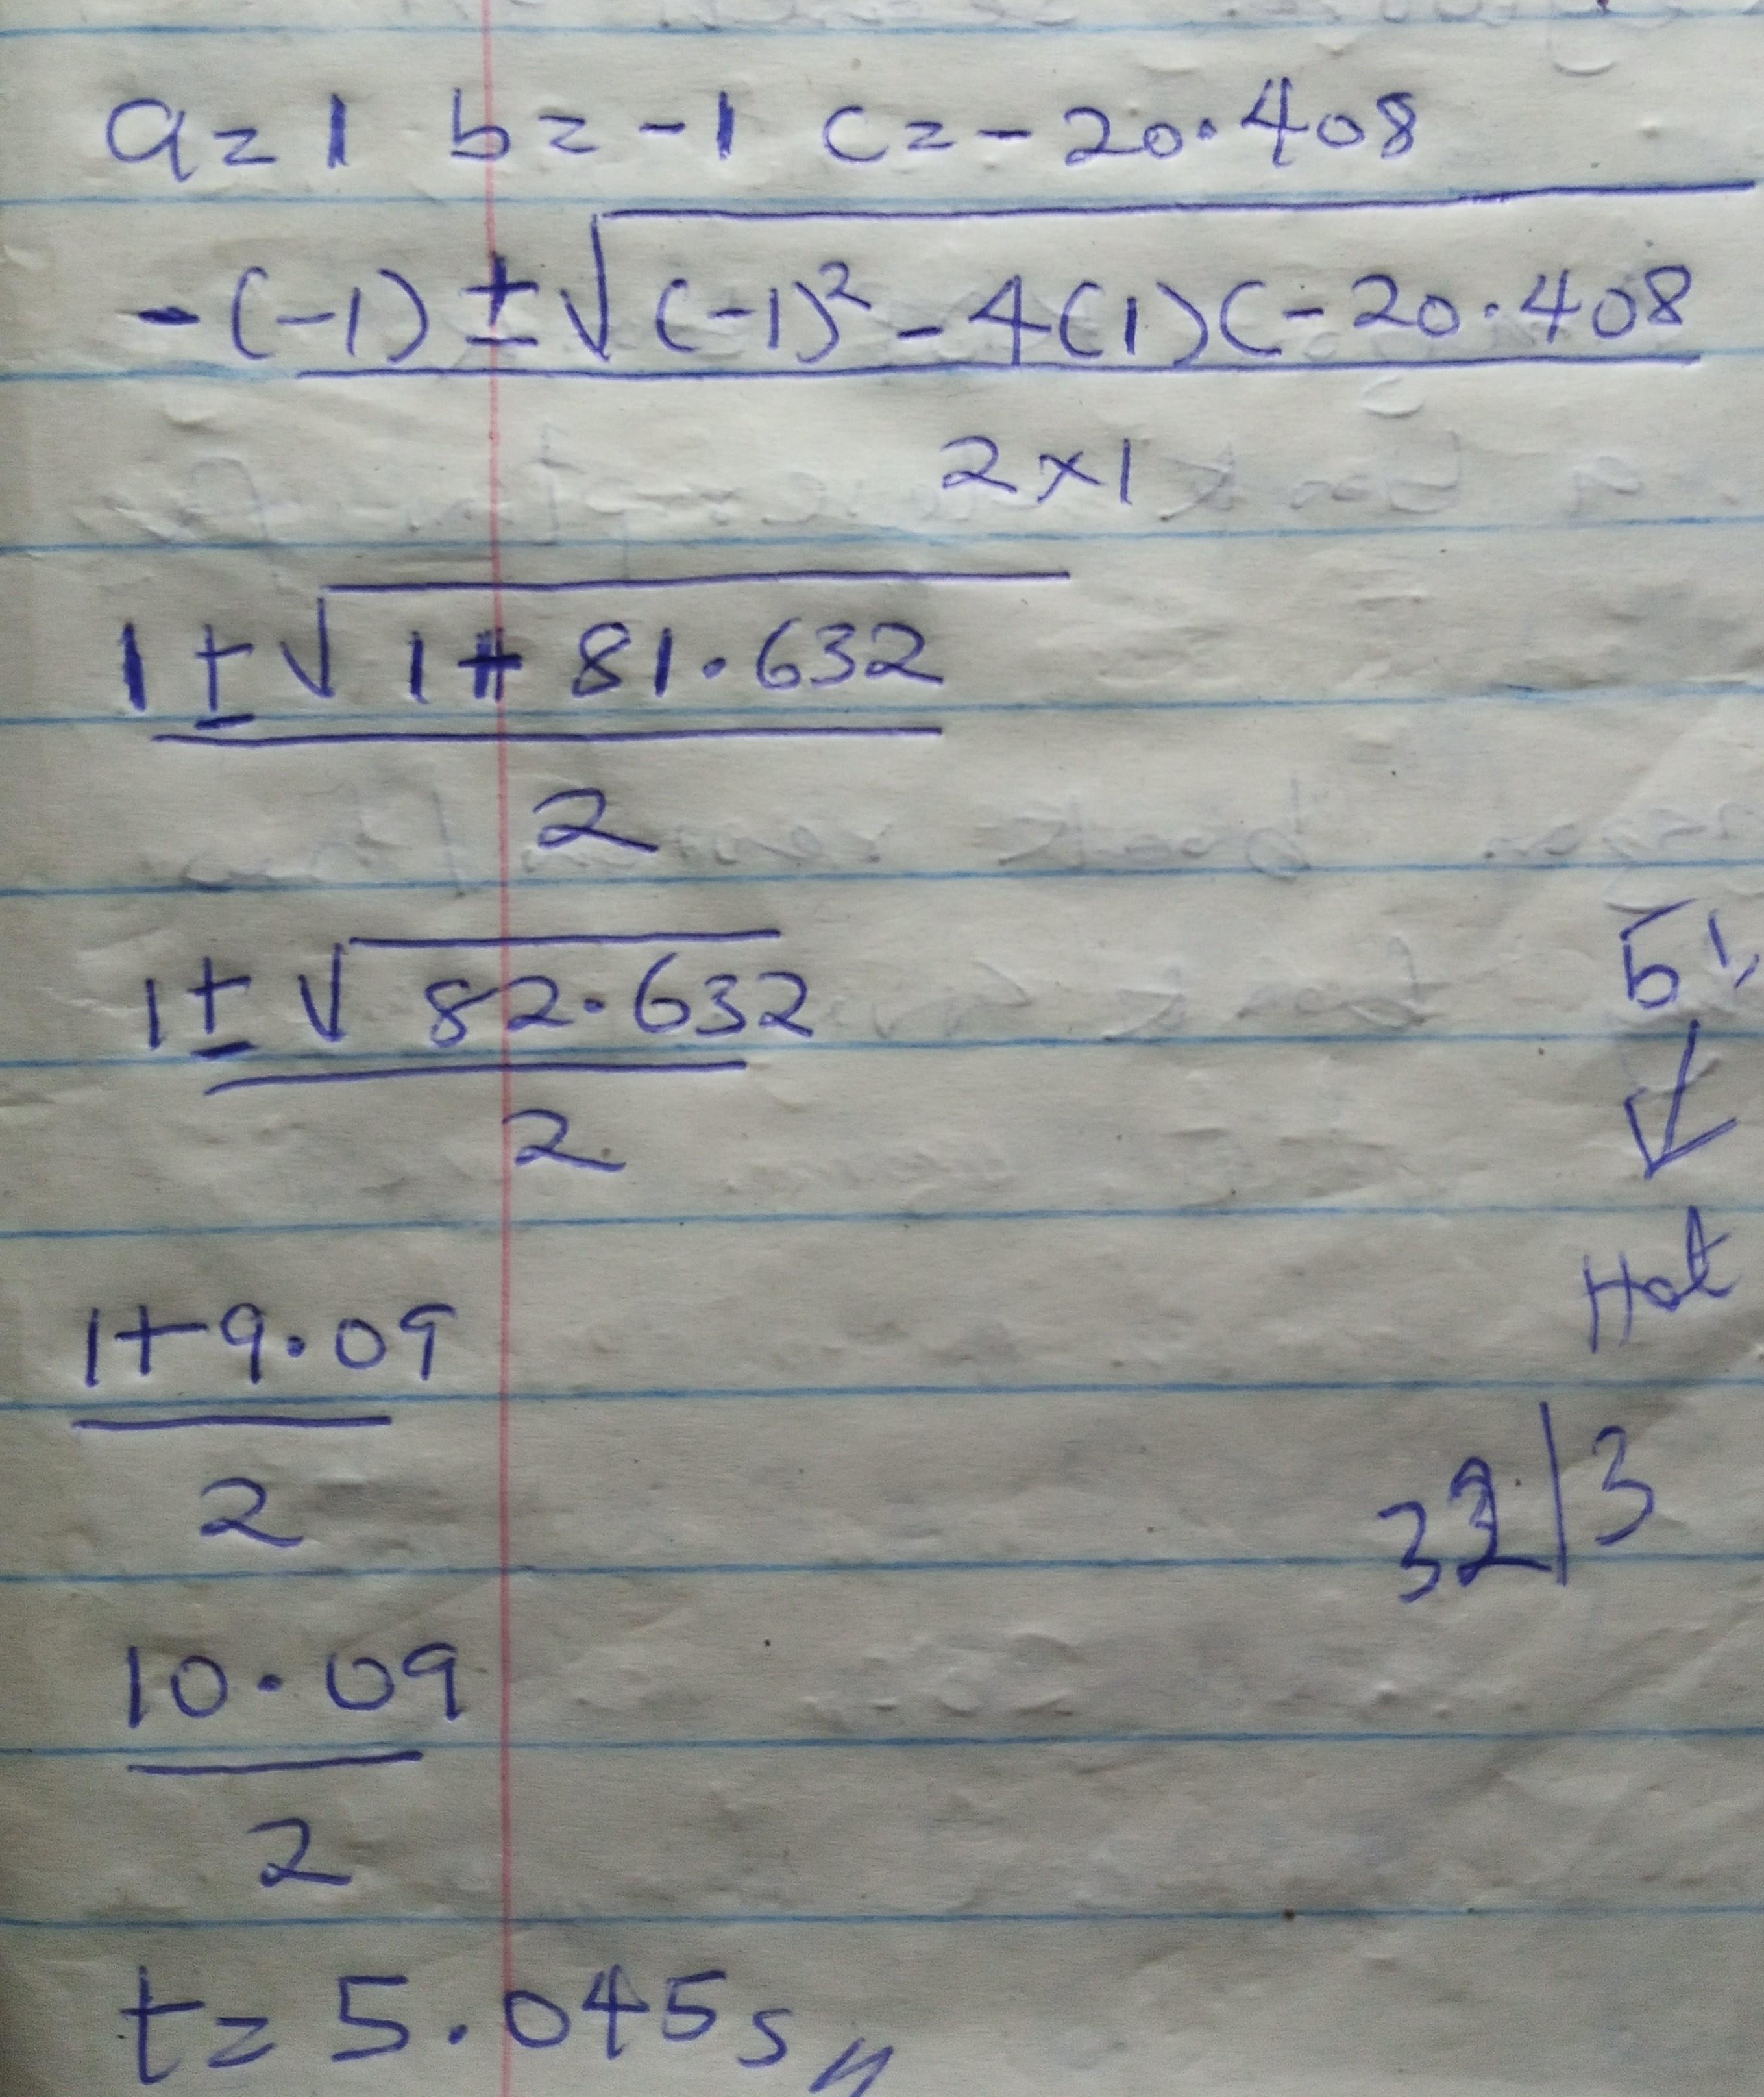 a = 1 b = -1 c = - 20.408
-(-1) ± √(-1)² - 4(1)(-20.408
2×1
1 ± √1 + 81.632
2
1 ± √82.632
2
1+9.09
2
Hot
10.09
2
t = 5.045s